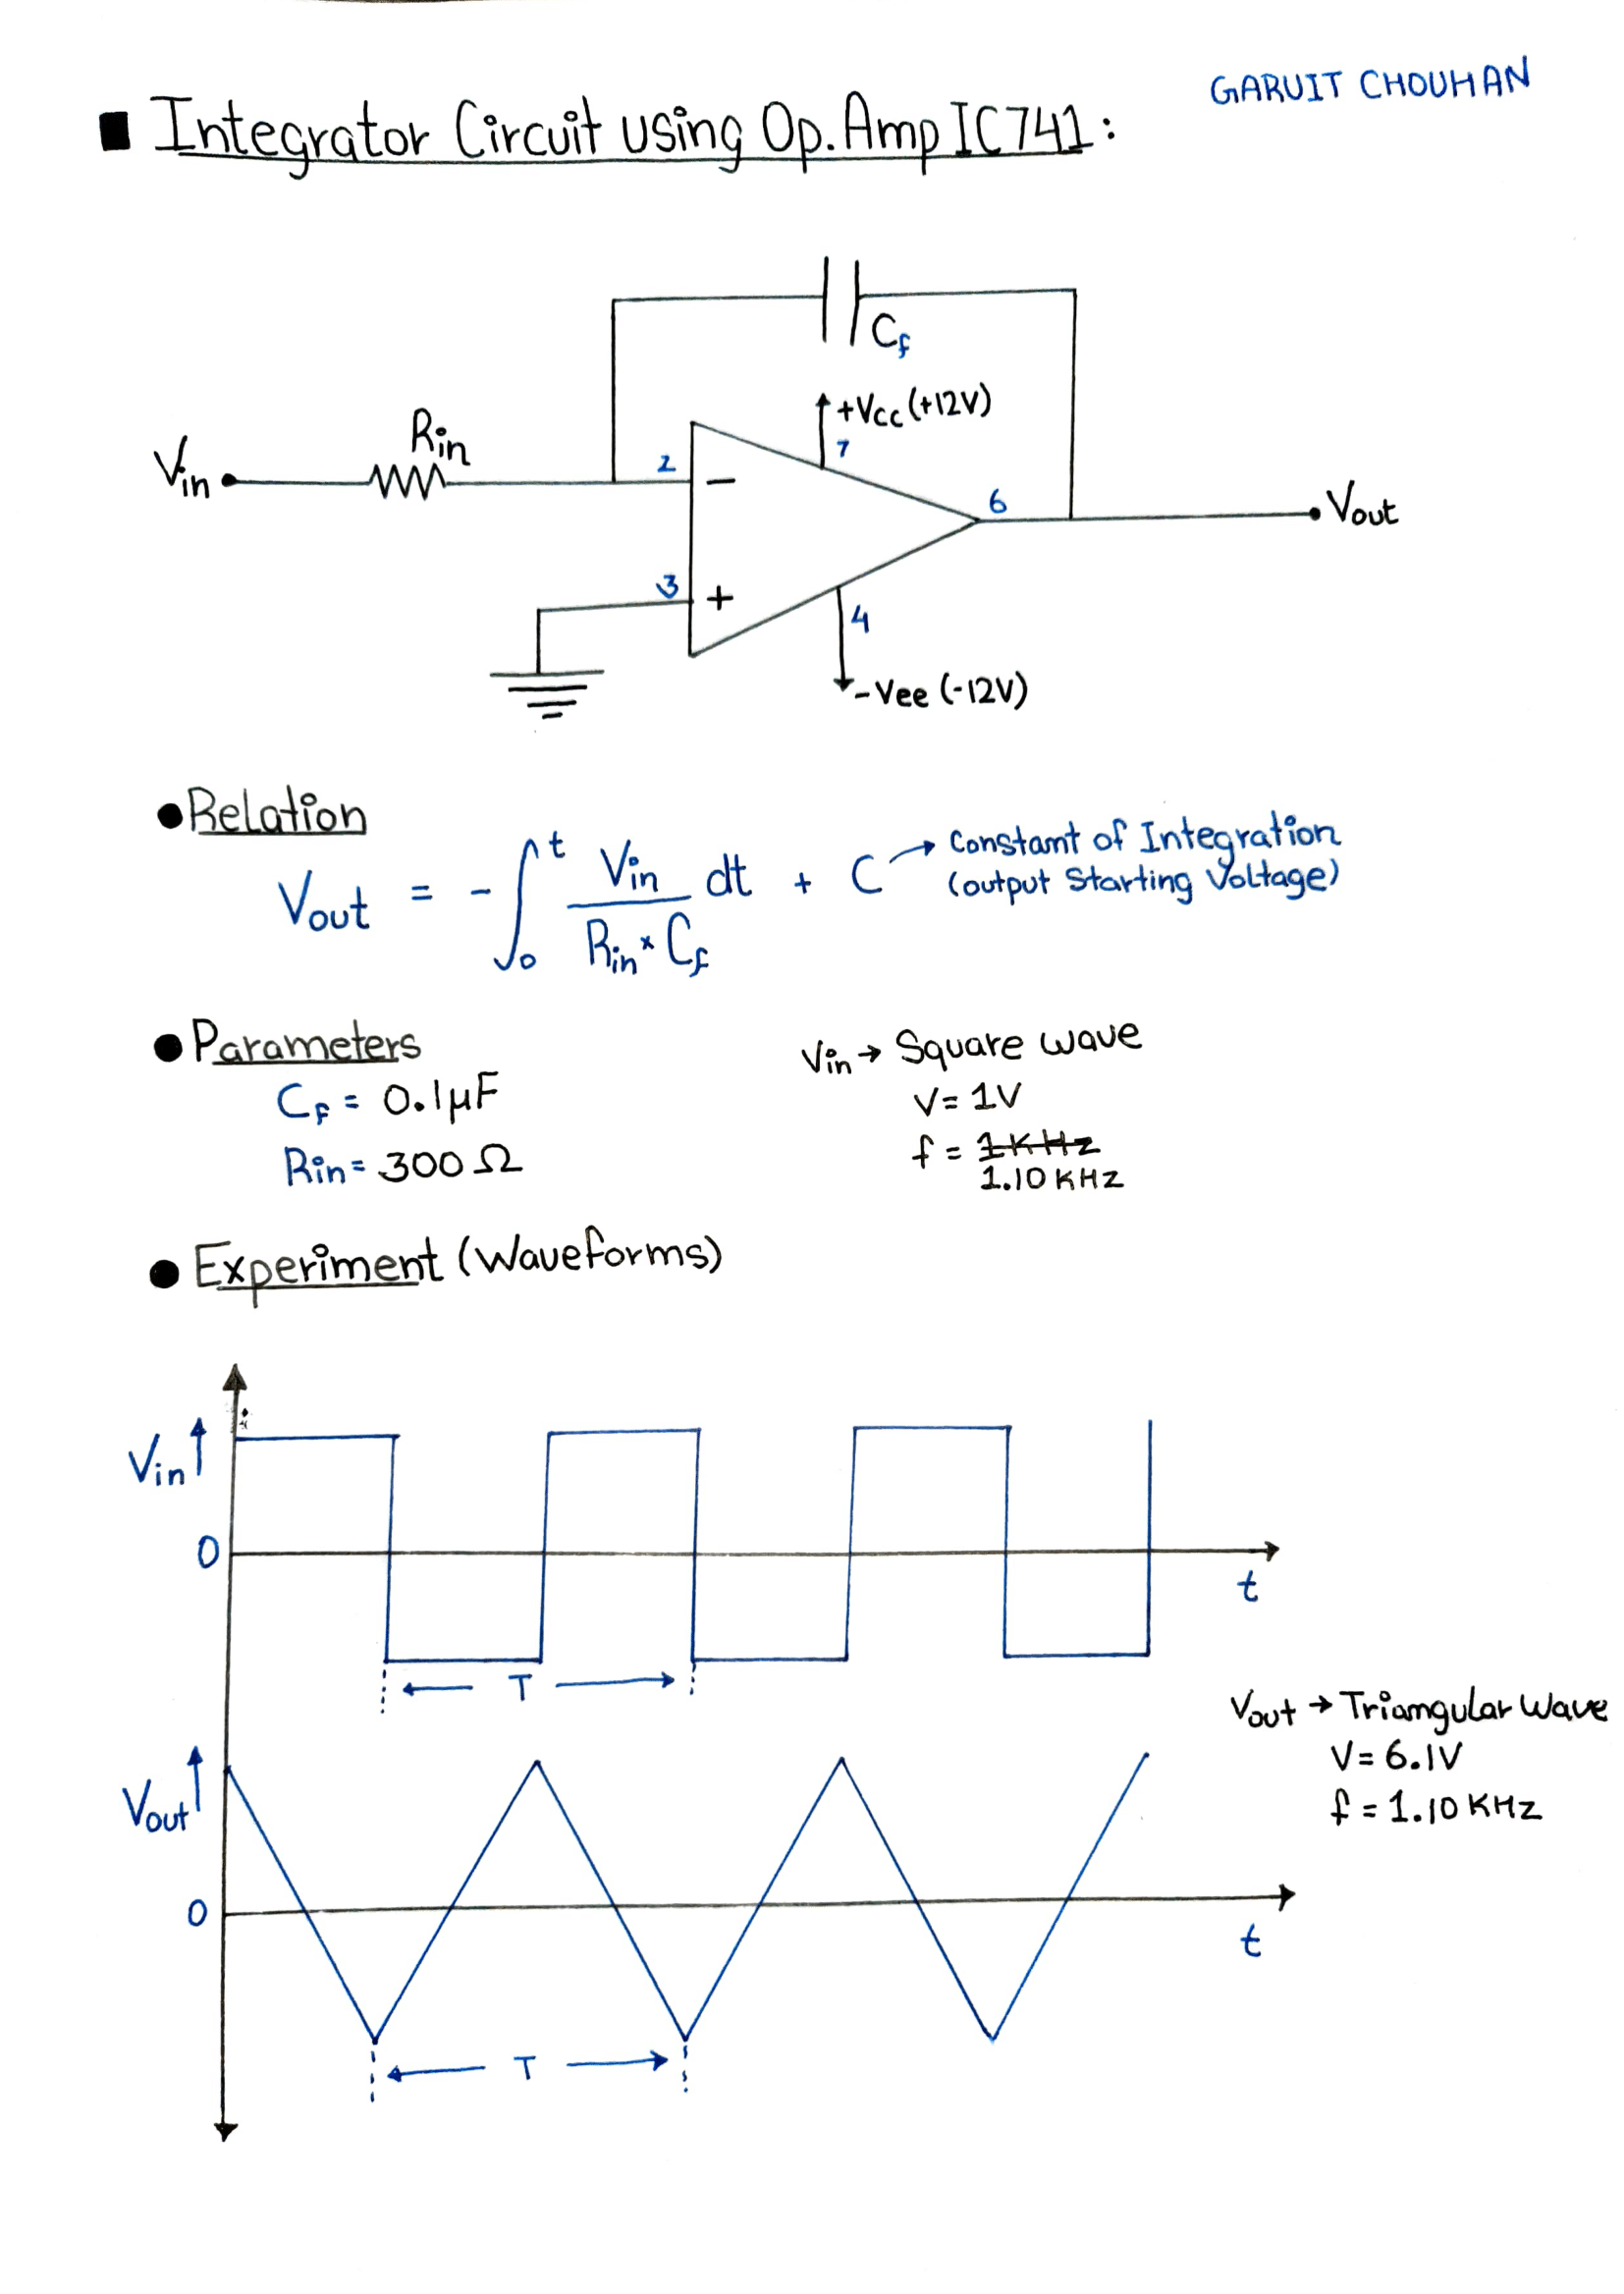 GARUIT CHOUHAN
■ Integrator Circuit using Op.Amp IC741:
Cf
+Vcc (+12V)
7
Rin
Vin
2
−
6
Vout
3
+
4
-Vee (-12V)
● Relation
Vout = - ∫₀ᵗ Vin / Rin × Cf dt + C → Constamt of Integration
(output Starting Voltage)
● Parameters
CF = 0.1μF
Rin = 300 Ω
Vin → Square wave
V = 1V
f = 1KHz
1.10 KHz
● Experiment (Waveforms)
Vin ↑
0
t
← T →
Vout → Triamgular Wave
V = 6.1V
f = 1.10 KHz
Vout ↑
0
t
← T →